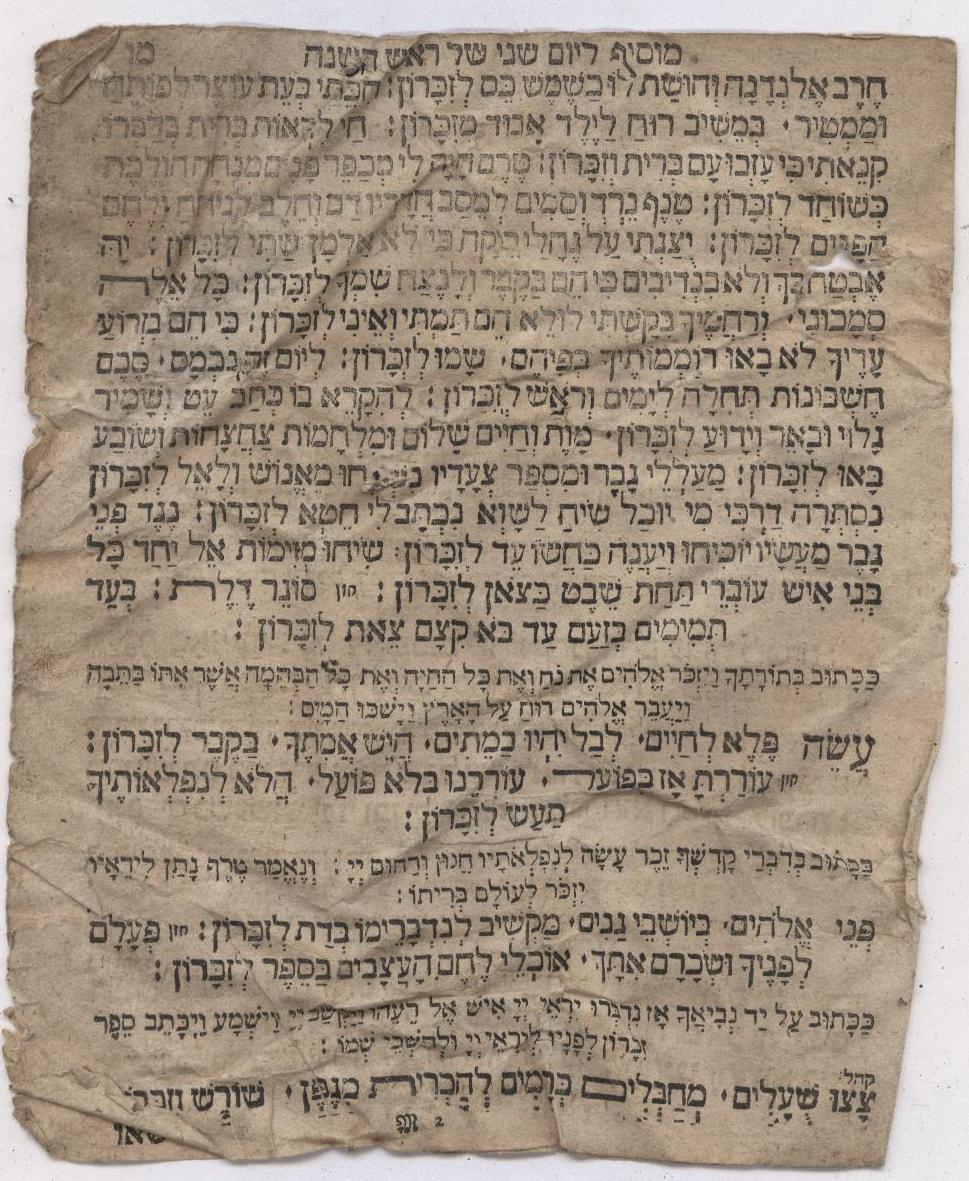 מוסיף ליום שני של ראש השנה מו
חֶרֶב אֶל נְדָנָהּ וְהוּשַׁת לוֹ בַשֶׁמֶשׁ כֵּס לְזִכָּרוֹן: חַכֹּתִי בְּעֵת עוֹצֵר
וּמַמְטִיר· בְּמֵשִׁיב רוּחַ לְיֶלֶד אָבוּד מִזִּכָּרוֹן: חַי לִרְאוֹת בְּרִית
קִנֵּאתִי כִּי עָזְבוּ עִם בְּרִית וְזִכָּרוֹן: טֶרֶם לִי מְכַפֵּר פָּנִים מִנְחָה הוֹלֶכֶת
כְּשׁוֹחַד לְזִכָּרוֹן: נֵרְדְּ וְסַמִּים לְמֵסַב וְדָם וְחֵלֶב וְלֶחֶם
הַפָּנִים לְזִכָּרוֹן: יְצָגַתִּי עַל כִּי לֹא אַלְמָן לְזִכָּרוֹן: יָהּ
אֶבְטַח בְּךָ וְלֹא בִנְדִיבִים כִּי הֵם בַּקֶּבֶר וְלָנֶצַח שִׁמְךָ לְזִכָּרוֹן: כָּל אֵלֶּה
סְמָכוּנִי· וְרַחֲמֶיךָ בִּקַּשְׁתִּי לוּלֵא הֵם תַּמְתִּי וְאֵינִי לְזִכָּרוֹן: כִּי הֵם מֵרוֹעַ
עָדֶיךָ לֹא בָאוּ רוֹמְמוֹתֶיךָ בְּפִיהֶם· שָׂמוּ לְזִכָּרוֹן: לְיוֹם זֶה נִכְמָס· סְכֹם
חֶשְׁבּוֹנוֹת תְּחִלָּה לְיָמִים וְרֹאשׁ לְזִכָּרוֹן: לְהִקָּרֵא בוֹ כְּתַב עֵט וְשָׁמִיר
גָּלוּי וּבָאֵר וְיָדוּעַ לְזִכָּרוֹן· מָוֶת וְחַיִּים שָׁלוֹם וּמִלְחָמוֹת צַחְצָחוֹת וְשׂוֹבַע
בָּאוּ לְזִכָּרוֹן: מַעַלְלֵי גֶבֶר וּמִסְפַּר צְעָדָיו מֵאֱנוֹשׁ וְלָאֵל לְזִכָּרוֹן
נִסְתְּרָה דַרְכִּי מִי יוּכַל שִׂיחַ לַשָּׁוְא נִכְתַּב לִי חֵטְא לְזִכָּרוֹן: נֶגֶד פְּנֵי
גֶבֶר מַעֲשָׂיו יוֹכִיחוּ וְיַעֲנֶה כַחֲשׁוֹ עֵד לְזִכָּרוֹן: שִׂיחוּ מְזִמּוֹת אֵל יַחַד כָּל
בְּנֵי אִישׁ עוֹבְרֵי תַּחַת שֵׁבֶט כַּצֹּאן לְזִכָּרוֹן: חזן סוֹגֵר דֶּלֶת: בְּעַד
תְּמִימִים בְּזַעַם עַד בֹּא קִצָּם צֵאת לְזִכָּרוֹן:
כַּכָּתוּב בְּתוֹרָתֶךָ וַיִּזְכֹּר אֱלֹהִים אֶת נֹחַ וְאֶת כָּל הַחַיָּה וְאֶת כָּל הַבְּהֵמָה אֲשֶׁר אִתּוֹ בַּתֵּבָה
וַיַּעֲבֵר אֱלֹהִים רוּחַ עַל הָאָרֶץ וַיָּשֹׁכּוּ הַמָּיִם:
עֲשֵׂה פֶּלֶא לְחַיִּים· לְבַל יִהְיוּ כְמֵתִים· הֲיֵשׁ אֲמִתֶּךָ· בַּקֶּבֶר לְזִכָּרוֹן:
חזן עוֹרַרְתָּ אָז בְּפוֹעַל· עוֹרְרֵנוּ בְּלֹא פוֹעַל· הֲלֹא לְנִפְלְאוֹתֶיךָ
תַּעַשׂ לְזִכָּרוֹן:
כַּכָּתוּב בְּדִבְרֵי קָדְשֶׁךָ זֵכֶר עָשָׂה לְנִפְלְאֹתָיו חַנּוּן וְרַחוּם יְיָ: וְנֶאֱמַר טֶרֶף נָתַן לִירֵאָיו
יִזְכֹּר לְעוֹלָם בְּרִיתוֹ:
פְּנֵי אֱלֹהִים· בְּיוֹשְׁבֵי גַנִּים· מַקְשִׁיב לְנִדְבָּרֵימוֹ בְּדַת לְזִכָּרוֹן: חזן פָּעֳלָם
לְפָנֶיךָ וּשְׂכָרָם אִתָּךְ· אוֹכְלֵי לֶחֶם הָעֲצָבִים בַּסֵּפֶר לְזִכָּרוֹן:
כַּכָּתוּב עַל יַד נְבִיאֶךָ אָז נִדְבְּרוּ יִרְאֵי יְיָ אִישׁ אֶל רֵעֵהוּ וַיַּקְשֵׁב יְיָ וַיִּשְׁמָע וַיִּכָּתֵב סֵפֶר
זִכָּרוֹן לְפָנָיו לְיִרְאֵי יְיָ וּלְחֹשְׁבֵי שְׁמוֹ:
קהל
צָצוּ שֻׁעָלִים· מְחַבְּלִים כְּרָמִים לְהַכְרִית מִגֶּפֶן· שׁוֹרֶשׁ
2
שאו